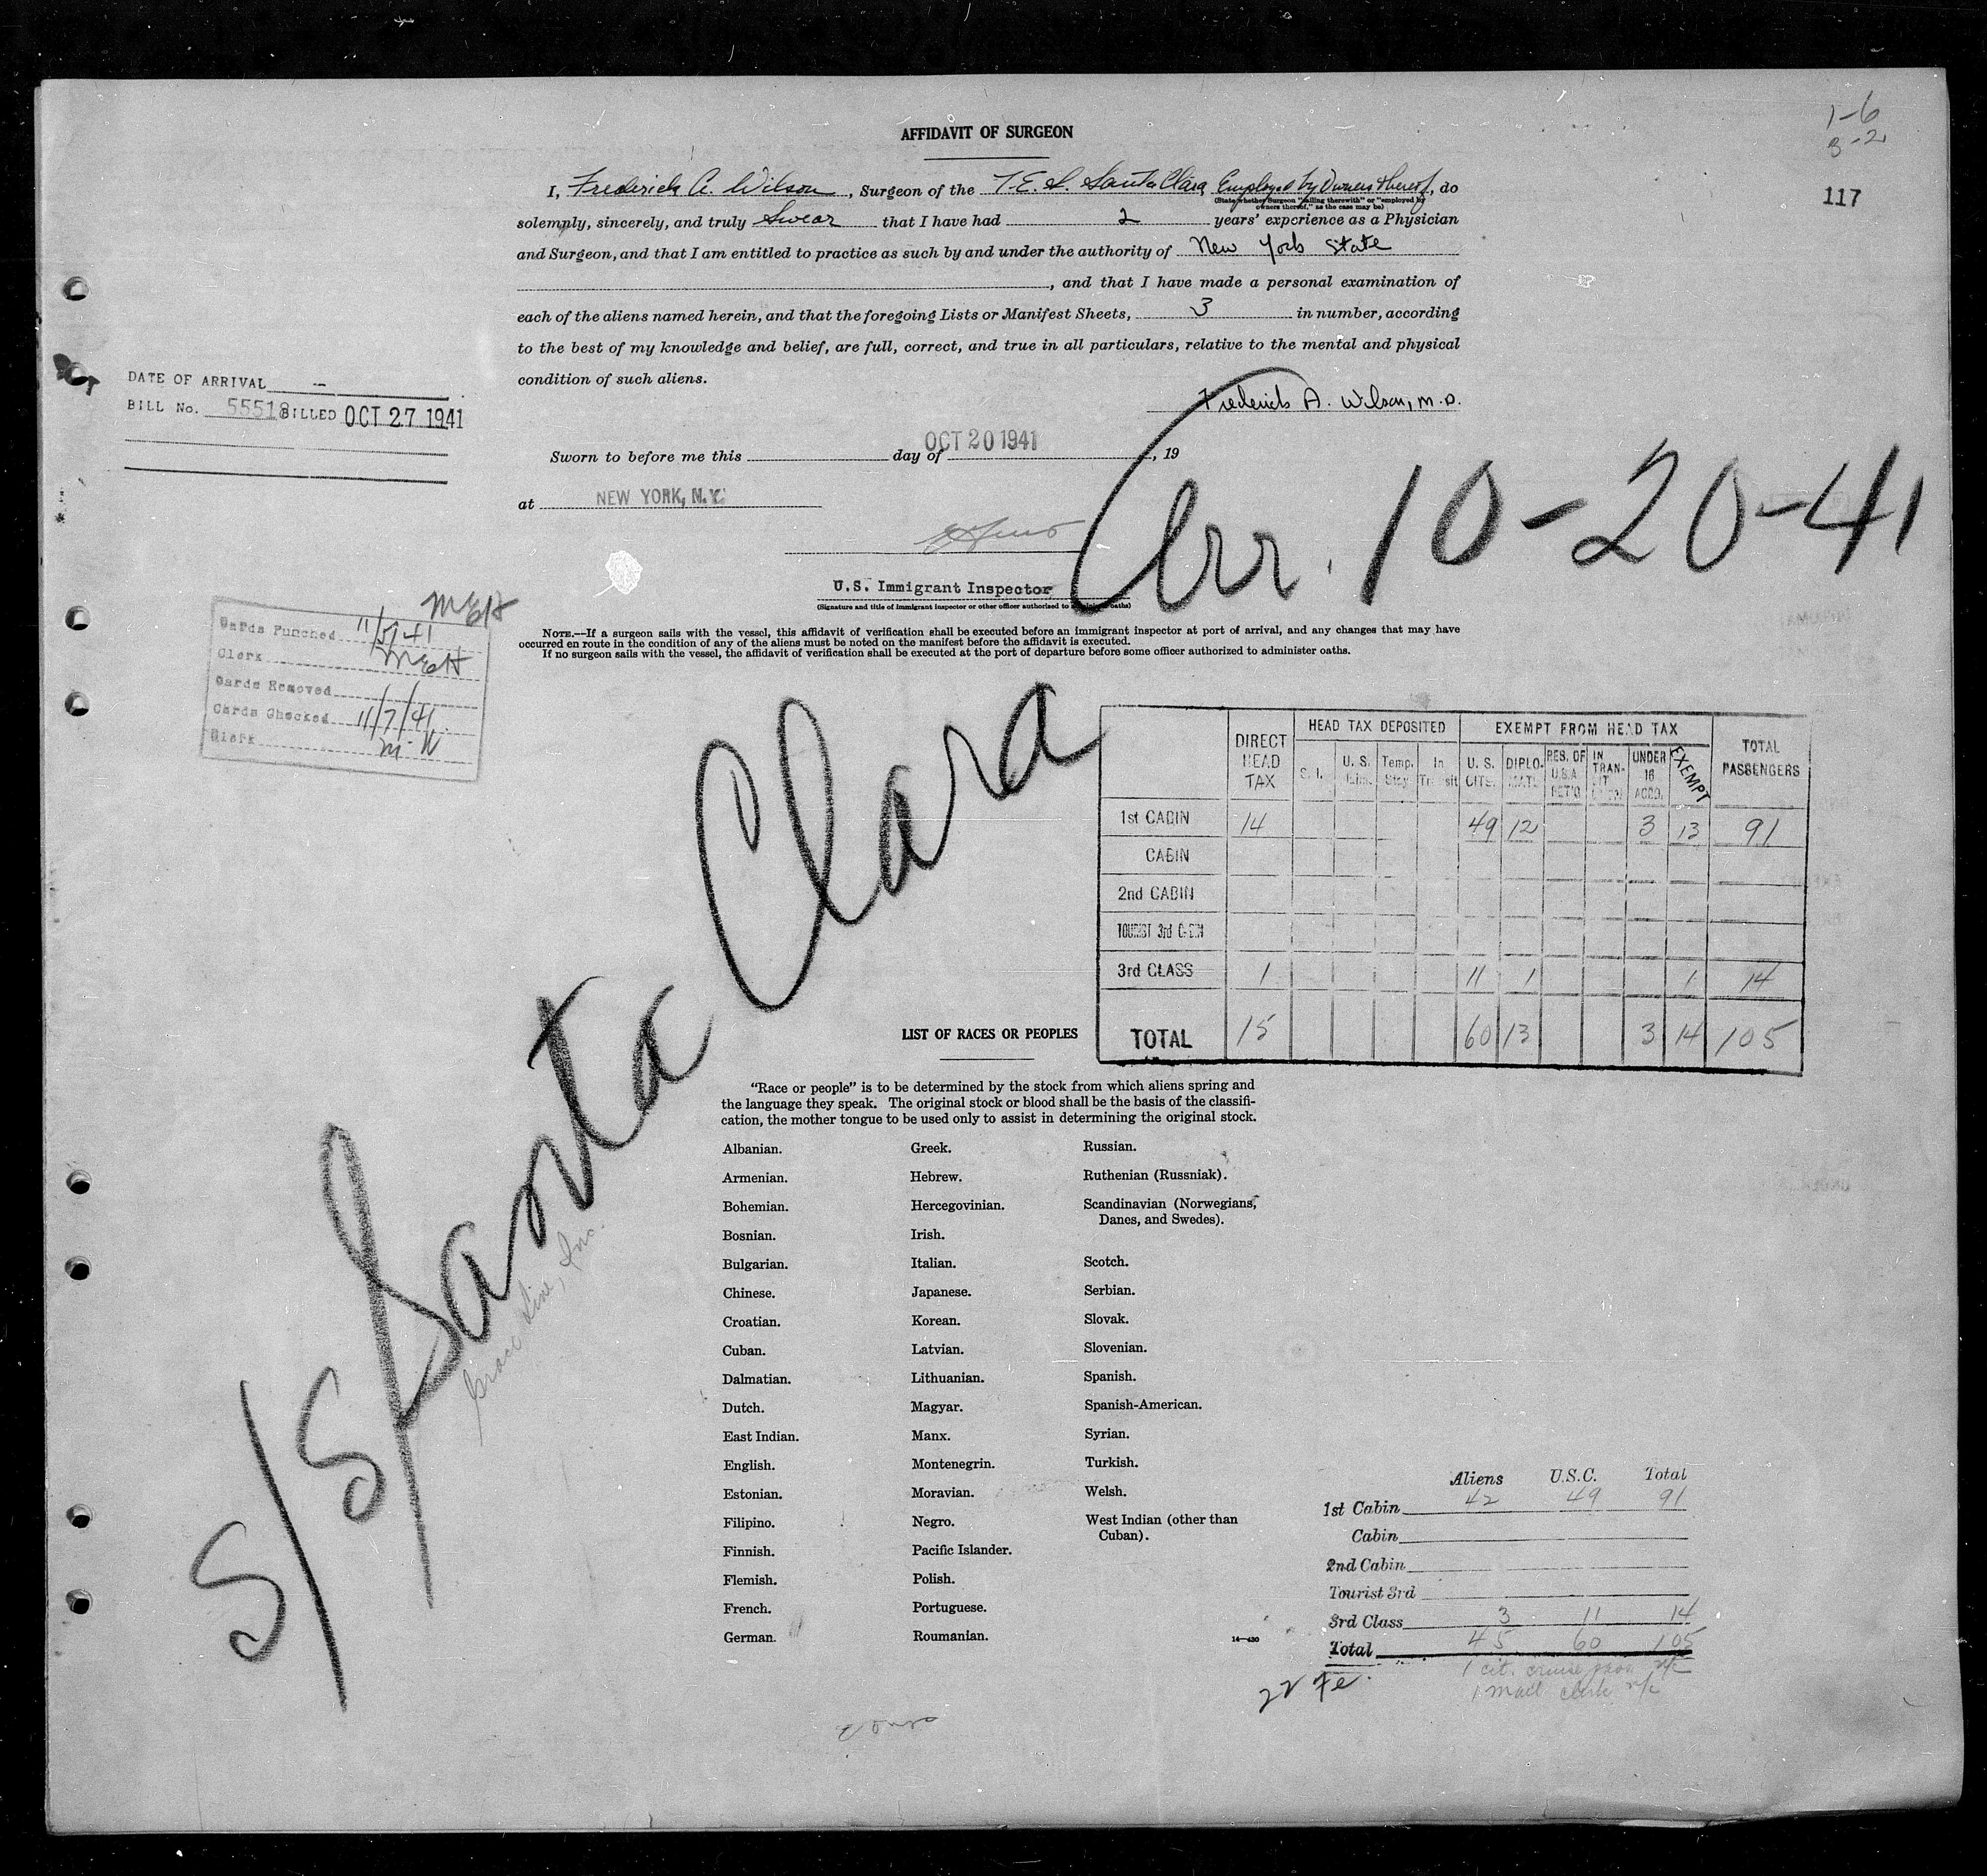 1-6
3-2
117
AFFIDAVIT OF SURGEON
I, Frederick A. Wilson, Surgeon of the T.E.S. Santa Clara Employed by Owners thereof, do
(State whether Surgeon "sailing therewith" or "employed by owners thereof," as the case may be)
solemnly, sincerely, and truly Swear that I have had 2 years' experience as a Physician
and Surgeon, and that I am entitled to practice as such by and under the authority of New York State
, and that I have made a personal examination of
each of the aliens named herein, and that the foregoing Lists or Manifest Sheets, 3 in number, according
to the best of my knowledge and belief, are full, correct, and true in all particulars, relative to the mental and physical
condition of such aliens.
Frederick A. Wilson, M.D.
DATE OF ARRIVAL —
BILL No. 55518 BILLED OCT 27 1941
Sworn to before me this day of OCT 20 1941, 19
at NEW YORK, N.Y.
Arr. 10-20-41
U.S. Immigrant Inspector
(Signature and title of immigrant inspector or other officer authorized to oaths)
NOTE.—If a surgeon sails with the vessel, this affidavit of verification shall be executed before an immigrant inspector at port of arrival, and any changes that may have
occurred en route in the condition of any of the aliens must be noted on the manifest before the affidavit is executed.
If no surgeon sails with the vessel, the affidavit of verification shall be executed at the port of departure before some officer authorized to administer oaths.
MEH
Cards Punched 11/5/41
Clerk MEH
Cards Removed
Cards Checked 11/7/41
Clerk M-W
S/S Santa Clara
Grace Line, Inc.
DIRECT HEAD TAX HEAD TAX DEPOSITED EXEMPT FROM HEAD TAX TOTAL PASSENGERS
S. I. U. S. Temp. Stay In Transit U. S. CITS. DIPLO- MATS RES. OF U.S.A. RET'G IN TRAN- SIT UNDER 16 ACCD. EXEMPT
1st CABIN 14 49 12 3 13 91
CABIN
2nd CABIN
TOURIST 3rd CABIN
3rd CLASS 1 11 1 1 14
TOTAL 15 60 13 3 14 105
LIST OF RACES OR PEOPLES
"Race or people" is to be determined by the stock from which aliens spring and
the language they speak. The original stock or blood shall be the basis of the classifi-
cation, the mother tongue to be used only to assist in determining the original stock.
Albanian. Greek. Russian.
Armenian. Hebrew. Ruthenian (Russniak).
Bohemian. Hercegovinian. Scandinavian (Norwegians,
Danes, and Swedes).
Bosnian. Irish.
Bulgarian. Italian. Scotch.
Chinese. Japanese. Serbian.
Croatian. Korean. Slovak.
Cuban. Latvian. Slovenian.
Dalmatian. Lithuanian. Spanish.
Dutch. Magyar. Spanish-American.
East Indian. Manx. Syrian.
English. Montenegrin. Turkish.
Estonian. Moravian. Welsh.
Filipino. Negro. West Indian (other than
Cuban).
Finnish. Pacific Islander.
Flemish. Polish.
French. Portuguese.
German. Roumanian.
14—430
Aliens U.S.C. Total
1st Cabin 42 49 91
Cabin
2nd Cabin
Tourist 3rd
3rd Class 3 11 14
Total 45 60 105
1 cit. cruise
1 mail clerk